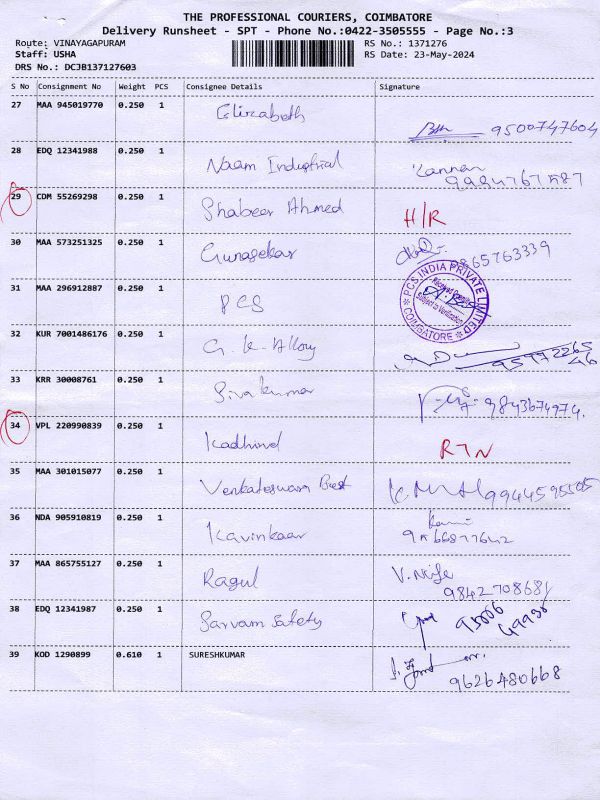 THE PROFESSIONAL COURIERS, COIMBATORE
Delivery Runsheet - SPT - Phone No.:0422-3505555 - Page No.:3
Route: VINAYAGAPURAM RS No.: 1371276
Staff: USHA RS Date: 23-May-2024
DRS No.: DCJB137127603
S No Consignment No Weight PCS Consignee Details Signature
27 MAA 945019770 0.250 1 Elizabeth 9500747604
28 EDQ 12341988 0.250 1 Naam Industrial Kannan
29 CDM 55269298 0.250 1 Shabeer Ahmed H/R
30 MAA 573251325 0.250 1 Gunasekar
31 MAA 296912887 0.250 1 PCS PCS INDIA PRIVATE LIMITED COIMBATORE Subject to Verification
32 KUR 7001486176 0.250 1 G.K. Alloy
33 KRR 30008761 0.250 1 Sivakumar 9843674974.
34 VPL 220990839 0.250 1 Kadhind RTN
35 MAA 301015077 0.250 1 Venkateswara Best 9944595505
36 NDA 905910819 0.250 1 Kavinkaar
37 MAA 865755127 0.250 1 Ragul 9842708681
38 EDQ 12341987 0.250 1 Sarvam Safety 95006 49938
39 KOD 1290899 0.610 1 SURESHKUMAR 9626480668